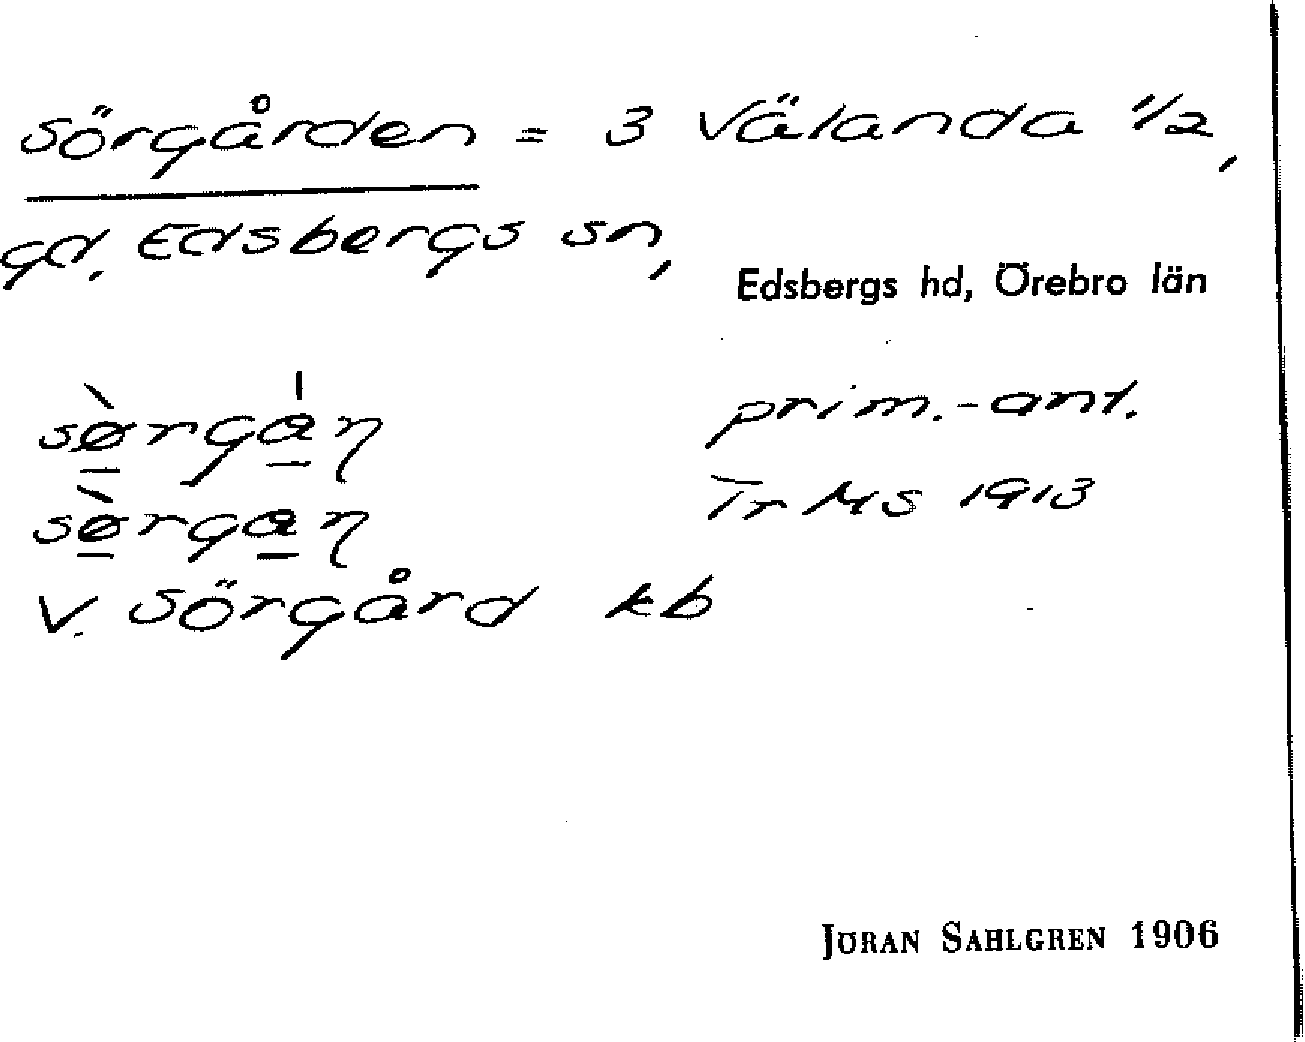 Sörgården = 3 Välanda 1/2,
gd, Edsbergs sn,
Edsbergs hd, Örebro län
sø̀rgàn prim.-ant.
sø̀rgan Tr MS 1913
V. Sörgård kb
JÖRAN SAHLGREN 1906